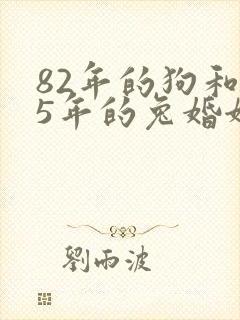 82年的狗和
5年的兔婚
劉雨波